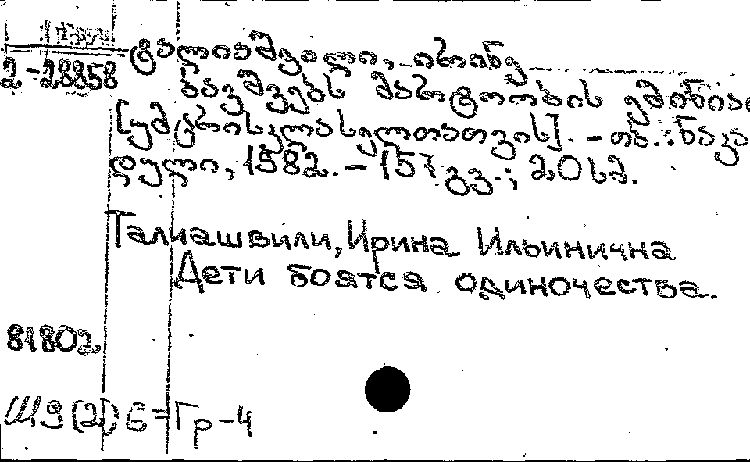 2-28858 ტალიაშვილი, ირინე
ბავშვებს მარტოობის ეშინიათ
[უმცრ. სკ. ასაკ.
დული, 1982. - 157 გვ.; 20 სმ.
Талиашвили, Ирина Ильинична
Дети боятся одиночества.
81802
Ш9(2)6=Гр-4